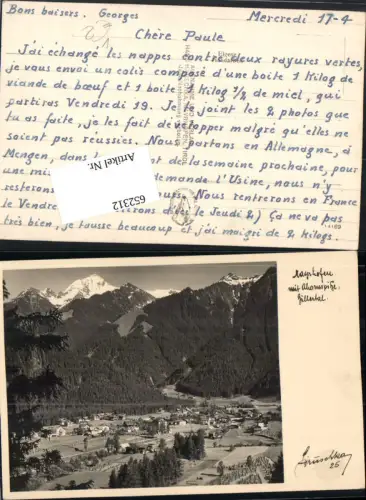 Bons baisers. Georges
Mercredi 17-4
Chère Paule
J'ai échangé les nappes contre deux rayures vertes,
je vous envoi un colis composé d'une boite 1 Kilog de
viande de bœuf et 1 boite 1 Kilog 1/2 de miel, qui
partiras Vendredi 19. Je te joint les 2 photos que
tu as faite, je les fait développer malgré qu'elles ne
soient pas réussies. Nous partons en Allemagne, à
Mengen, dans de la semaine prochaine, pour
une demande l'Usine, nous n'y
resterons jours. Nous rentrerons en France
le Vendre le Jeudi 2) Ça ne va pas
très bien, je tousse beaucoup et j'ai maigri de 2 kilogs.
Artikel Nr.
652312
Mayrhofen
mit Ahornspitze.
Zillertal.